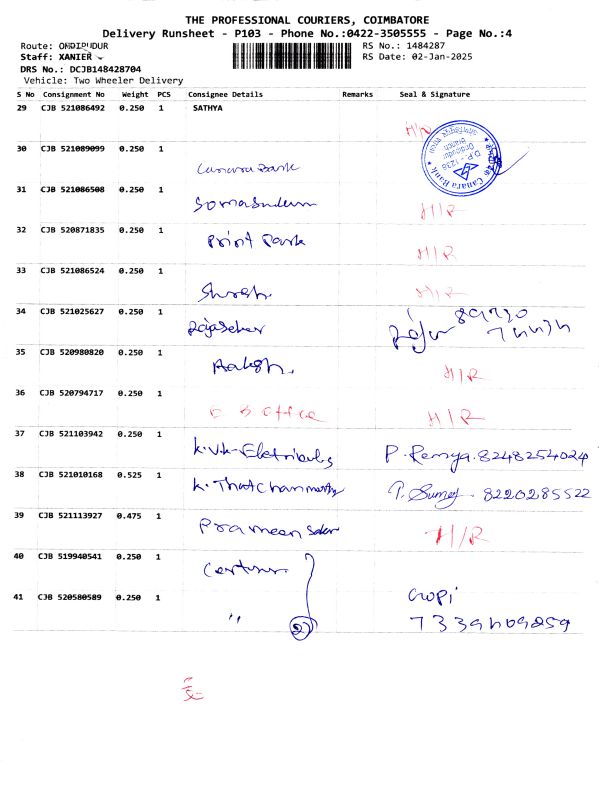 THE PROFESSIONAL COURIERS, COIMBATORE
Delivery Runsheet - P103 - Phone No.:0422-3505555 - Page No.:4
Route: ONDIPUDUR RS No.: 1484287
Staff: XANIER RS Date: 02-Jan-2025
DRS No.: DCJB148428704
Vehicle: Two Wheeler Delivery
S No Consignment No Weight PCS Consignee Details Remarks Seal & Signature
29 CJB 521086492 0.250 1 SATHYA
H/R
30 CJB 521089099 0.250 1
Canara Bank
Canara Bank
D.P.-1238
Ondipudur
Branch
31 CJB 521086508 0.250 1
Somasundaram H/R
32 CJB 520871835 0.250 1
Print Park H/R
33 CJB 521086524 0.250 1
H/R
34 CJB 521025627 0.250 1
Rajasekar
35 CJB 520980820 0.250 1
H/R
36 CJB 520794717 0.250 1
Office H/R
37 CJB 521103942 0.250 1
K.V.K. P. Remya. 8248254024
38 CJB 521010168 0.525 1
K. 8220285522
39 CJB 521113927 0.475 1
H/R
40 CJB 519940541 0.250 1
41 CJB 520580589 0.250 1
Gopi
"
2